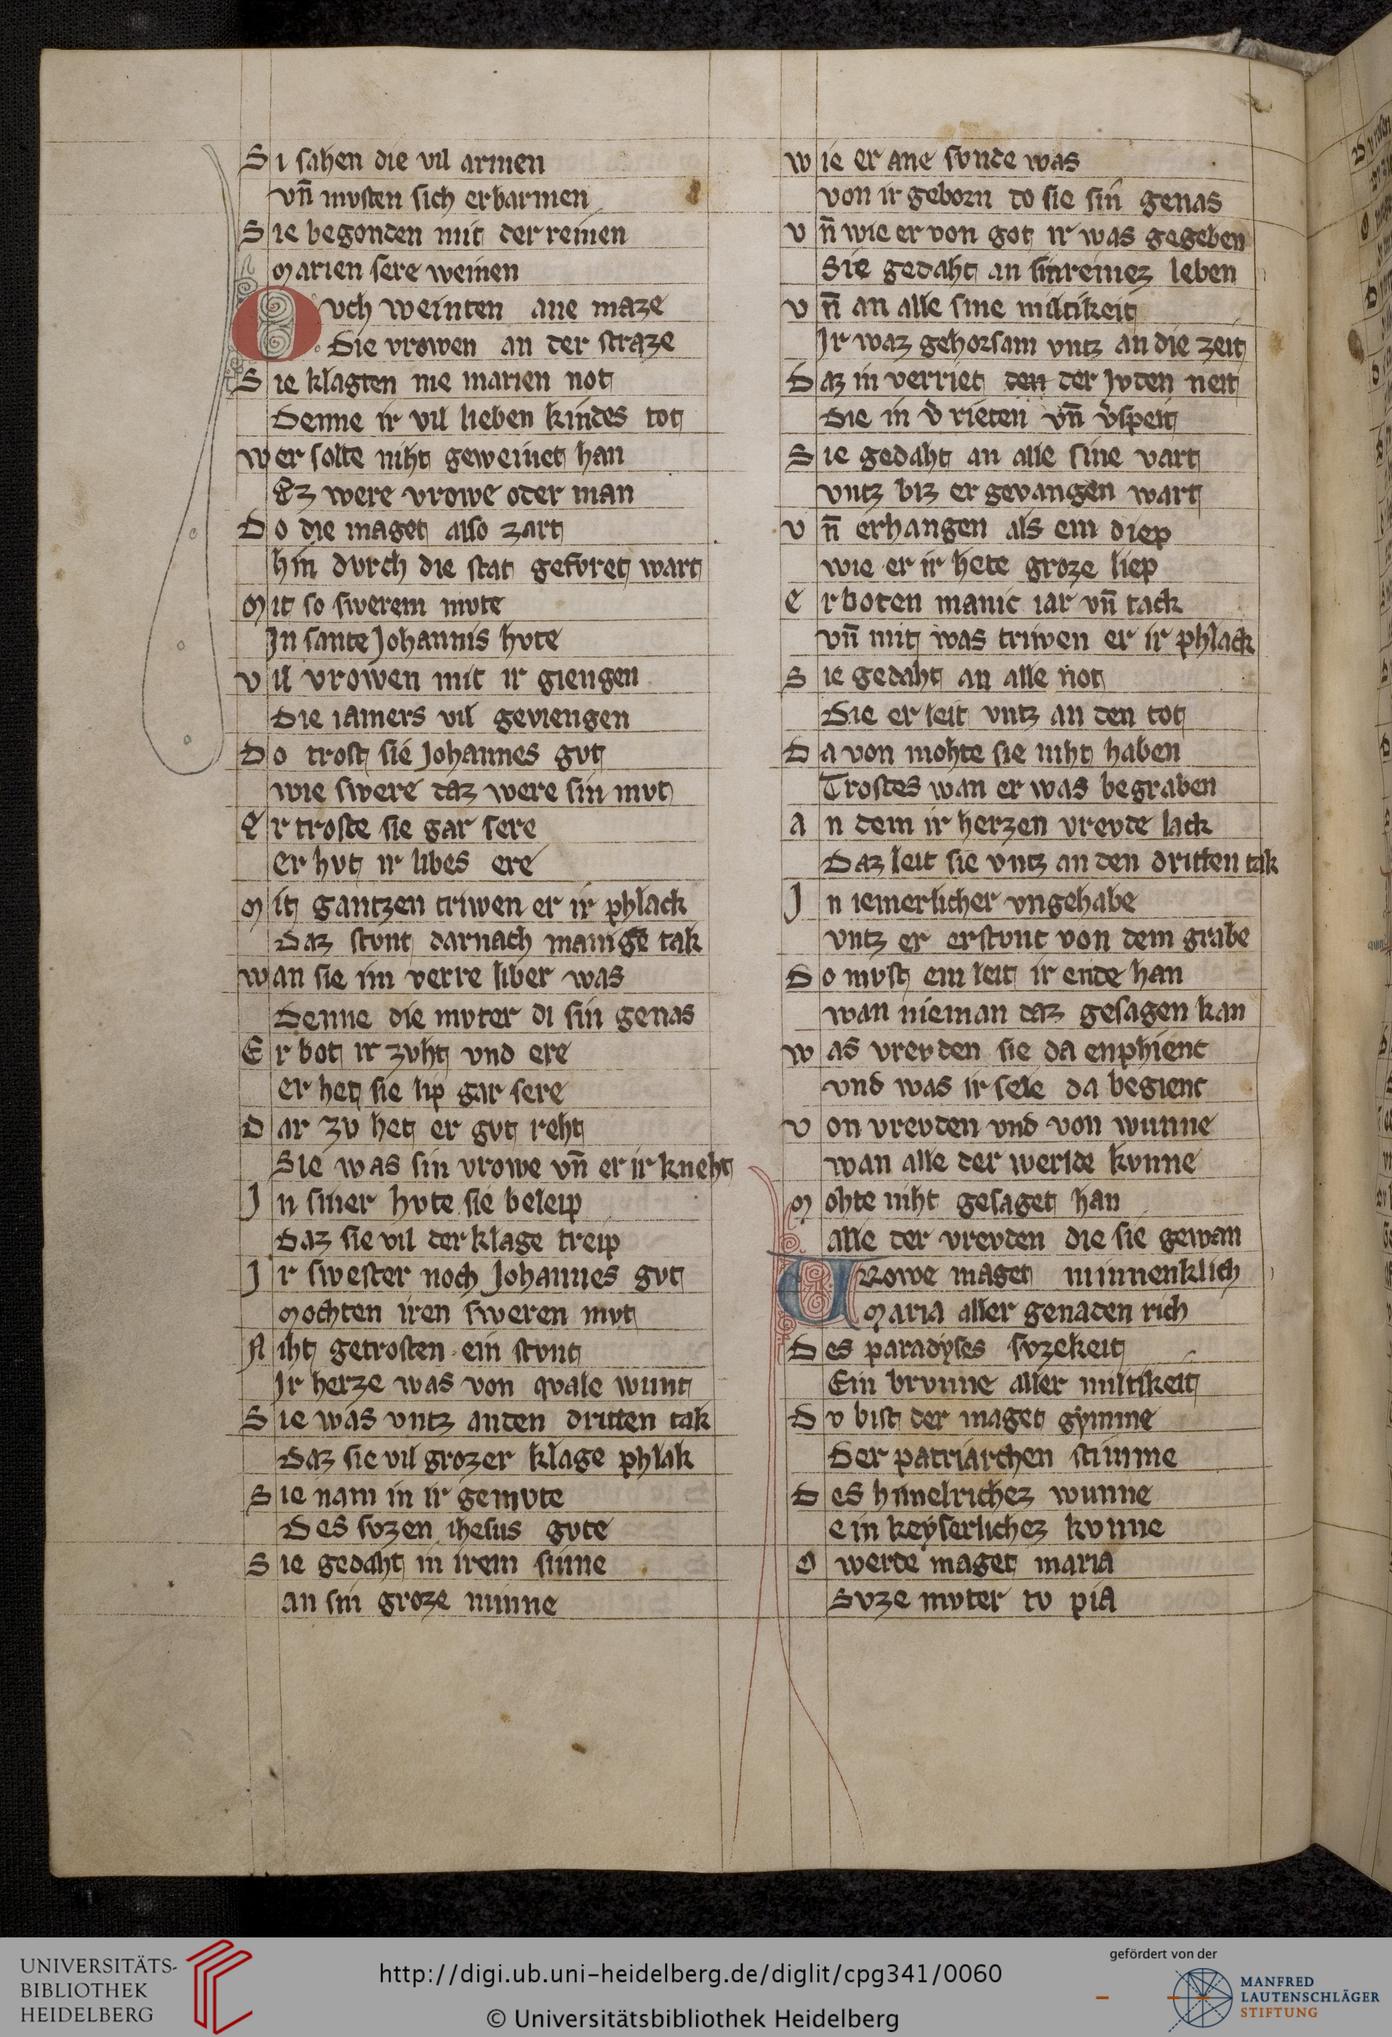 Si sahen die vil armen
vn̄ mvsten sich erbarmen
Sie begonden mit der reinen
Marien sere weinen
Ovch weinten ane maze
Die vrowen an der straze
Sie klagten me marien not
Denne ir vil lieben kindes tot
wer solte niht geweinet han
Ez were vrowe oder man
Do die maget also zart
hin dvrch die stat gefvret wart
Mit so swerem mvte
In sante Johannis hvte
vil vrowen mit ir giengen
Die iamers vil geviengen
Do trost sie Johannes gvt
wie swere daz were sin mvt
Er troste sie gar sere
er hvt ir libes ere
Mit gantzen triwen er ir phlack
Daz stvnt darnach manige tak
wan sie im verre liber was
Denne die mvter di sin genas
Er bot ir zvht vnd ere
er het sie lip gar sere
Dar zv het er gvt reht
Sie was sin vrowe vn̄ er ir kneht
In siner hvte sie beleip
Daz sie vil der klage treip
Ir swester noch Johannes gvt
Mochten iren sweren mvt
Niht getrosten ein stvnt
Ir herze was von qvale wunt
Sie was vntz an den dritten tak
Daz sie vil grozer klage phlak
Sie nam in ir gemvte
Des svzen ihesus gvte
Sie gedaht in irem sinne
an sin groze minne
wie er ane svnde was
von ir geborn do sie sin genas
vn̄ wie er von got ir was gegeben
Sie gedaht an sin reinez leben
vn̄ an alle sine miltikeit
Ir waz gehorsam vntz an die zeit
Daz in verriet den der Jvden neit
Die in v̄rieten vn̄ v̄speit
Sie gedaht an alle sine vart
vntz biz er gevangen wart
vn̄ erhangen als ein diep
wie er ir hete groze liep
erboten manic iar vn̄ tack
vn̄ mit was triwen er ir phlack
Sie gedaht an alle not
Die er leit vntz an den tot
Da von mohte sie niht haben
Trostes wan er was begraben
an dem ir herzen vrevde lack
Daz leit sie vntz an den dritten tak
In iemerlicher vngehabe
vntz er erstvnt von dem grabe
Do mvst ein leit ir ende han
wan nieman daz gesagen kan
was vrevden sie da enphienc
vnd was ir sele da begienc
von vrevden vnd von wunne
wan alle der werlde kvnne
Mohte niht gesaget han
alle der vrevden die sie gewan
Vrowe maget minnenklich
Maria aller genaden rich
Des paradyses svzekeit
Ein brvnne aller miltikeit
Dv bist der maget gymme
Der patriarchen stimme
Des himelrichez wunne
ein keyserlichez kvnne
O werde maget maria
Svze mvter tv pia
UNIVERSITÄTS-
BIBLIOTHEK
HEIDELBERG
http://digi.ub.uni-heidelberg.de/diglit/cpg341/0060
© Universitätsbibliothek Heidelberg
gefördert von der
MANFRED
LAUTENSCHLÄGER
STIFTUNG